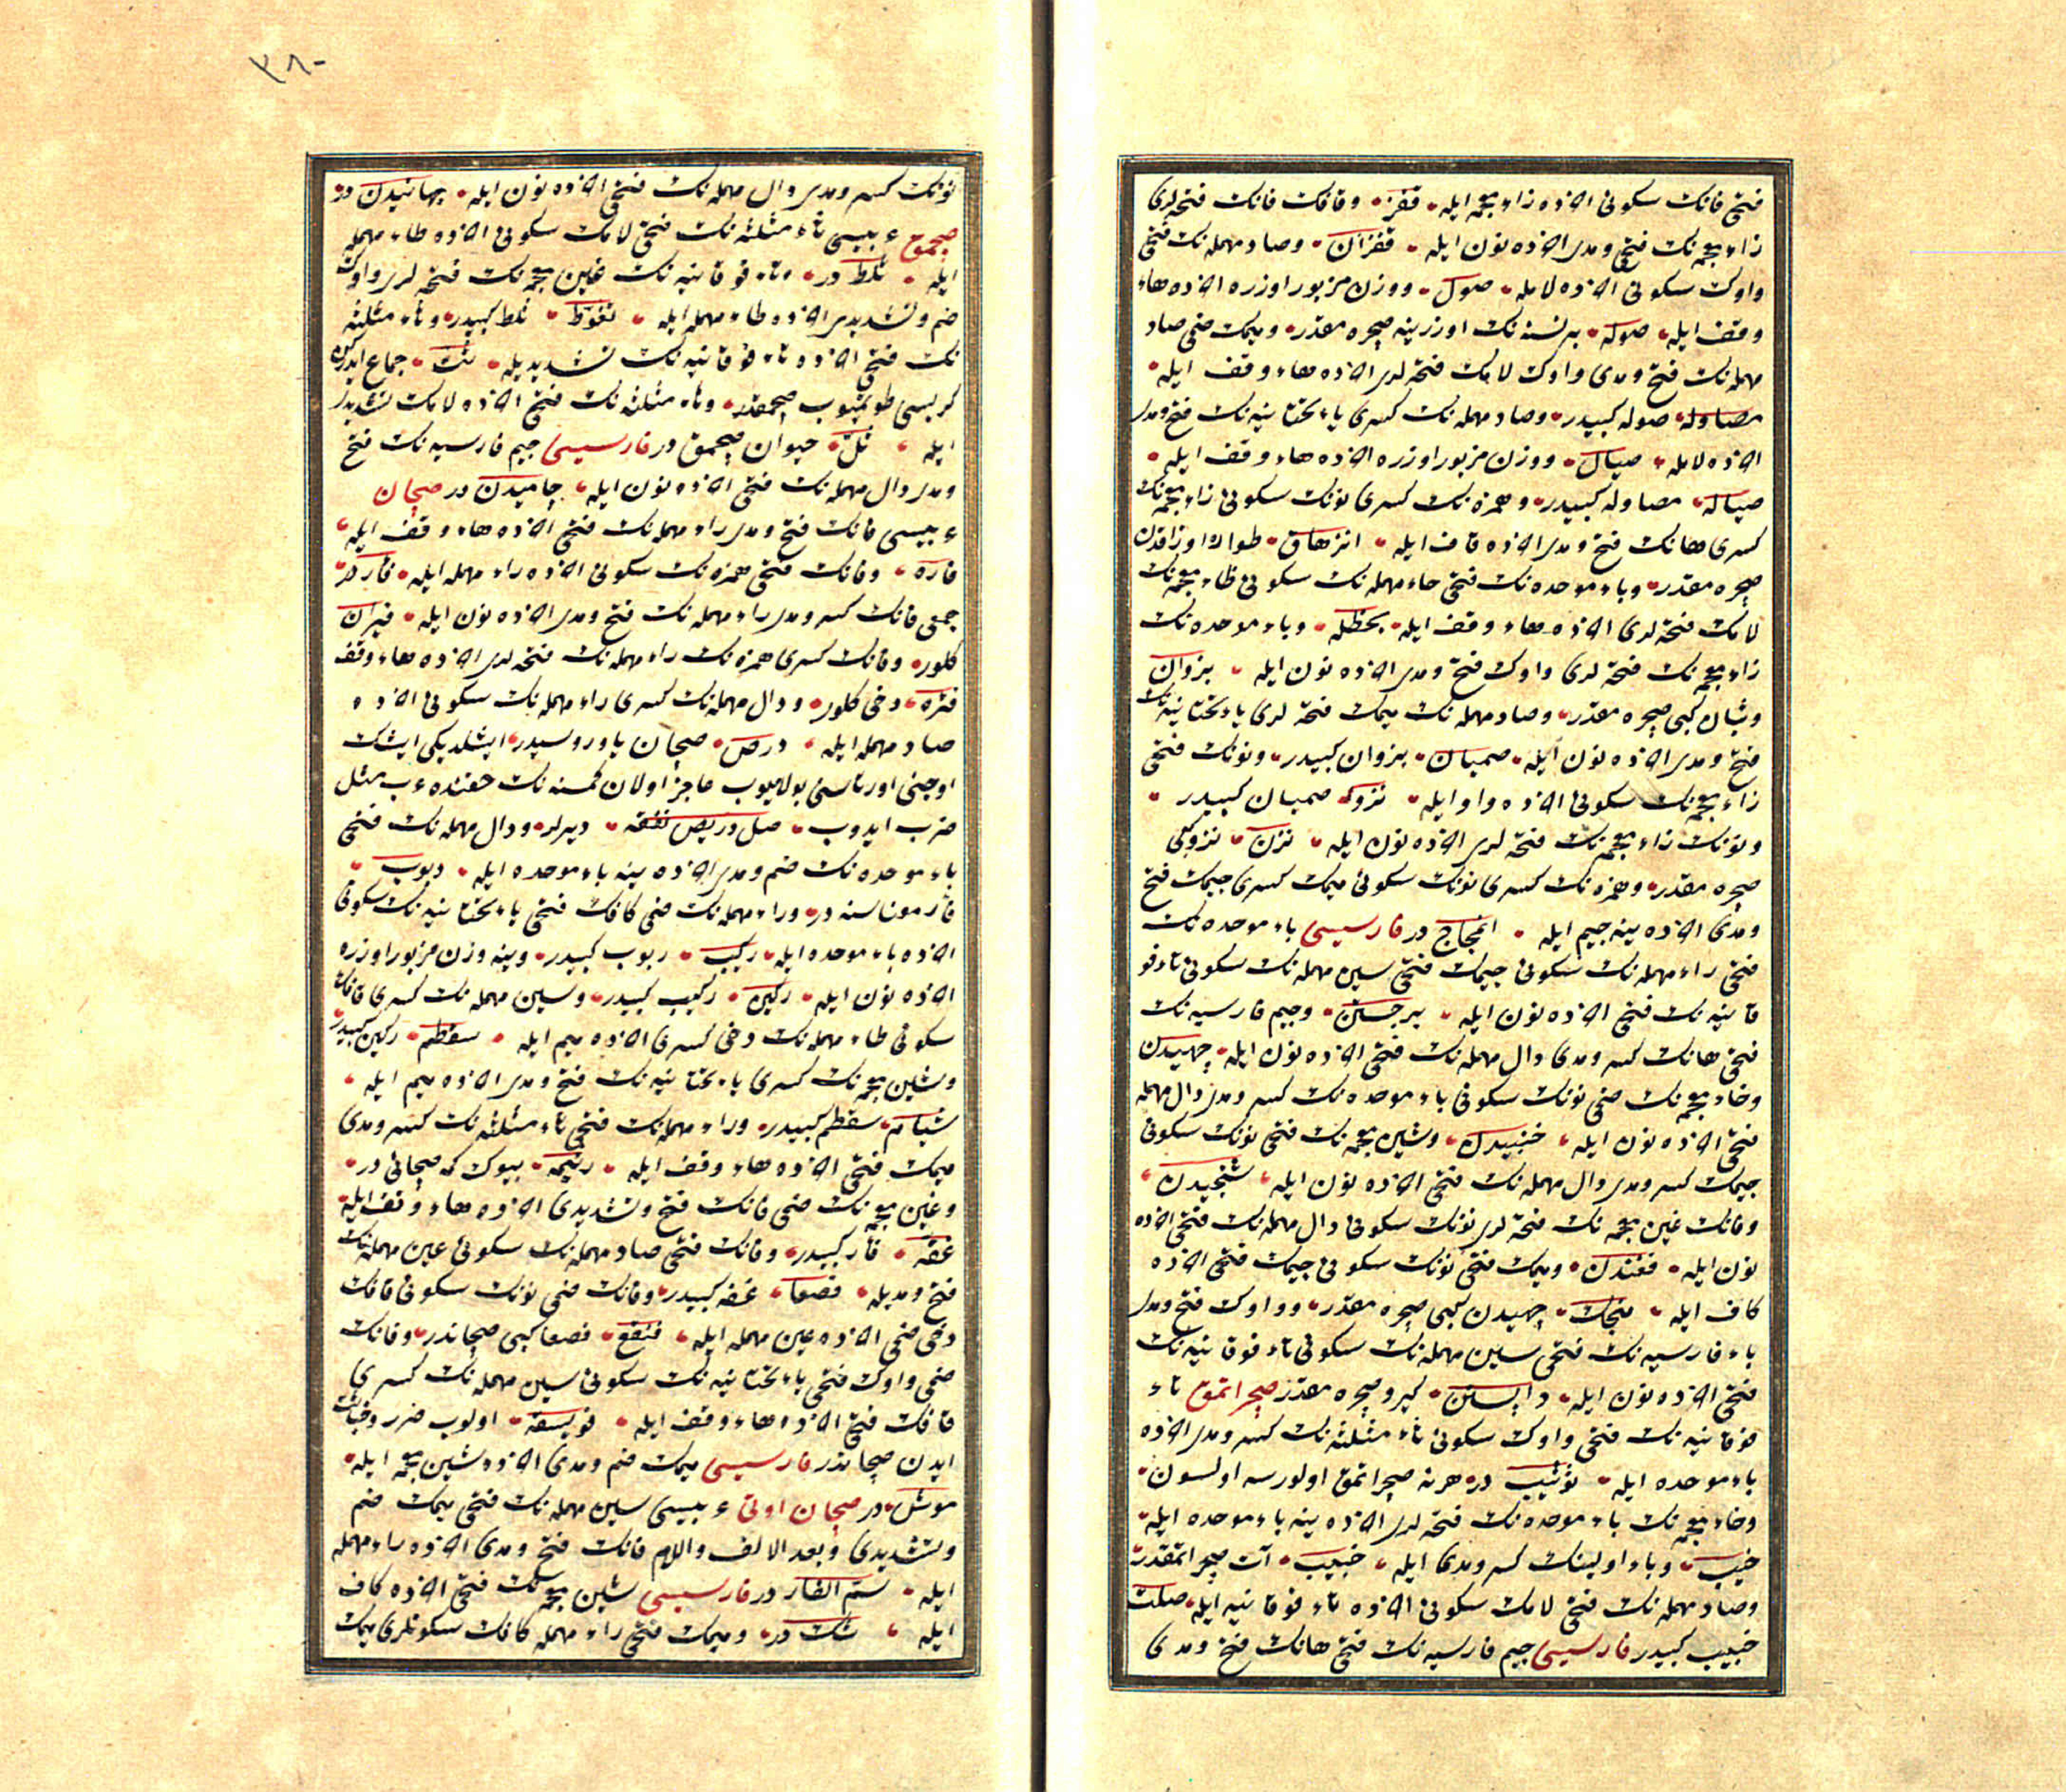 فتحی فانك سکونی اخرنده زاء معجمه ایله قفز وقافك فانك فتحه لری
زاء معجمه نك فتح ومدی اخرنده نون ایله قفزان وصاد مهمله نك فتحی
واوك سکونی اخرنده لامله صول ووزن مزبور اوزره اخرنده هاء
وقف ایله صوله برنسنه نك اوزرینه صچره مقدر ومیمك ضمی صاد
مهمله نك فتح ومدی واوك لامك فتحه لری اخرنده هاء وقف ایله
مصاوله صوله کبیدر وصاد مهمله نك کسری یاء تحتانیه نك فتح ومدی
اخرنده لامله صیال ووزن مزبور اوزره اخرنده هاء وقف ایله
صیاله مصاوله کبیدر وهمزه نك کسری نونك سکونی زاء معجمه نك
کسری هانك فتح ومدی اخرنده قاف ایله انزهاق طوار اوزاقدن
صچره مقدر وباء موحده نك فتحی حاء مهمله نك سکونی ظاء معجمه نك
لامك فتحه لری اخرنده هاء وقف ایله بحظله وباء موحده نك
زاء معجمه نك فتحه لری واوك فتح ومدی اخرنده نون ایله بزوان
وثبان کبی صچره مقدر وصاد مهمله نك میمك فتحه لری یاء تحتانیه نك
فتح ومدی اخرنده نون ایله صمیان بزوان کبیدر ونونك فتحی
زاء معجمه نك سکونی اخرنده واو ایله نزو که صمیان کبیدر
ونونك زاء معجمه نك فتحه لری اخرنده نون ایله نزن نزو کبی
صچره مقدر وهمزه نك کسری نونك سکونی میمك کسری جیمك فتح
ومدی اخرنده ینه جیم ایله انمجاج در فارسیسی باء موحده نك
فتحی راء مهمله نك سکونی جیمك فتحی سین مهمله نك سکونی تاء فو
قانیه نك فتحی اخرنده نون ایله برجستن وجیم فارسیه نك
فتحی هانك کسر ومدی دال مهمله نك فتحی اخرنده نون ایله جهیدن
وخاء معجمه نك ضمی نونك سکونی باء موحده نك کسر ومدی دال مهمله
فتحی اخرنده نون ایله خنبیدن وشین معجمه نك فتحی نونك سکونی
جیمك کسر ومدی دال مهمله نك فتحی اخرنده نون ایله شنجیدن
وفانك غین معجمه نك فتحه لری نونك سکونی دال مهمله نك فتحی اخرنده
نون ایله فغندن ومیمك فتحی نونك سکونی جیمك فتحی اخرنده
کاف ایله منجك جهیدن کبی صچره مقدر وواوك فتح ومدی
باء فارسیه نك فتحی سین مهمله نك سکونی تاء فوقانیه نك
فتحی اخرنده نون ایله واپستن کیرو صچره مقدر صچراتمق تاء
فوقانیه نك فتحی واوك سکونی ثاء مثلثه نك کسر ومدی اخرنده
باء موحده ایله توثیب در هرنه صچراتمق اولورسه اولسون
وخاء معجمه نك باء موحده نك فتحه لری اخرنده ینه باء موحده ایله
خبب وباء اولینك کسر ومدی ایله خبیب آت صچراتمقدر
وصاد مهمله نك فتحی لامك سکونی اخرنده تاء فوقانیه ایله صلت
خبیب کبیدر فارسیسی جیم فارسیه نك فتحی هانك فتح ومدی
٣٨٠
نونك کسر ومدی دال مهمله نك فتحی اخرنده نون ایله جهانیدن در
صچمق عربیسی ثاء مثلثه نك فتحی لامك سکونی اخرنده طاء مهمله
ایله ثلط در وتاء فوقانیه نك غین معجمه نك فتحه لری واوك
ضم وتشدیدی اخرنده طاء مهمله ایله تغوط ثلط کبیدر وثاء مثلثه
نك فتحی اخرنده تاء فوقانیه نك تشدیدیله ثت جماع ایدرکن
کریسی طوتمیوب صچمقدر وثاء مثلثه نك فتحی اخرنده لامك تشدید
ایله ثل حیوان صچمق در فارسیسی جیم فارسیه نك فتح
ومدی دال مهمله نك فتحی اخرنده نون ایله چامیدن در صچان
عربیسی فانك فتح ومدی راء مهمله نك فتحی اخرنده هاء وقف ایله
فاره وفانك فتحی همزه نك سکونی اخرنده راء مهمله ایله فأر در
جمعی فانك کسر ومدی راء مهمله نك فتح ومدی اخرنده نون ایله فیران
کلور وفانك کسری همزه نك راء مهمله نك فتحه لری اخرنده هاء وقف
فئره دخی کلور ودال مهمله نك کسری راء مهمله نك سکونی اخرنده
صاد مهمله ایله درص صچان یاوروسیدر ایشلدیکی ایشك
اوجنی اورتاسنی بولمیوب عاجز اولان کمسنه نك حقنده عرب مثل
ضرب ایدوب ضل دریص نفقه دیرلر ودال مهمله نك فتحی
باء موحده نك ضم ومدی اخرنده ینه باء موحده ایله دبوب
فأر موناسنه در وراء مهمله نك ضمی کافك فتحی یاء تحتانیه نك سکونی
اخرنده باء موحده ایله رکیب ربوب کبیدر وینه وزن مزبور اوزره
اخرنده نون ایله رکین رکیب کبیدر وسین مهمله نك کسری قافك
سکونی طاء مهمله نك دخی کسری اخرنده میم ایله سقطم رکین کبیدر
وشین معجمه نك کسری یاء تحتانیه نك فتح ومدی اخرنده میم ایله
شیام سقطم کبیدر وراء مهمله نك فتحی ثاء مثلثه نك کسر ومدی
میمك فتحی اخرنده هاء وقف ایله رثیمه بیوك که صچانی در
وغین معجمه نك ضمی فانك فتح وتشدیدی اخرنده هاء وقف ایله
غفه فأر کبیدر وفانك فتحی صاد مهمله نك سکونی عین مهمله نك
فتح ومدیله فصعا غفه کبیدر وفانك ضمی نونك سکونی قافك
دخی ضمی اخرنده عین مهمله ایله فنقع فصعا کبی صچاندر وفانك
ضمی واوك فتحی یاء تحتانیه نك سکونی سین مهمله نك کسری
قافك فتحی اخرنده هاء وقف ایله فویسقه اولوب ضرر
ایدن صچاندر فارسیسی میمك ضم ومدی اخرنده شین معجمه ایله
موش در صچان اوتی عربیسی سین مهمله نك فتحی میمك ضم
وتشدیدی وبعد الالف واللام فانك فتح ومدی اخرنده راء مهمله
ایله سم الفار در فارسیسی شین معجمه نك فتحی اخرنده کاف
ایله شك در ومیمك فتحی راء مهمله کافك سکونلری میمك